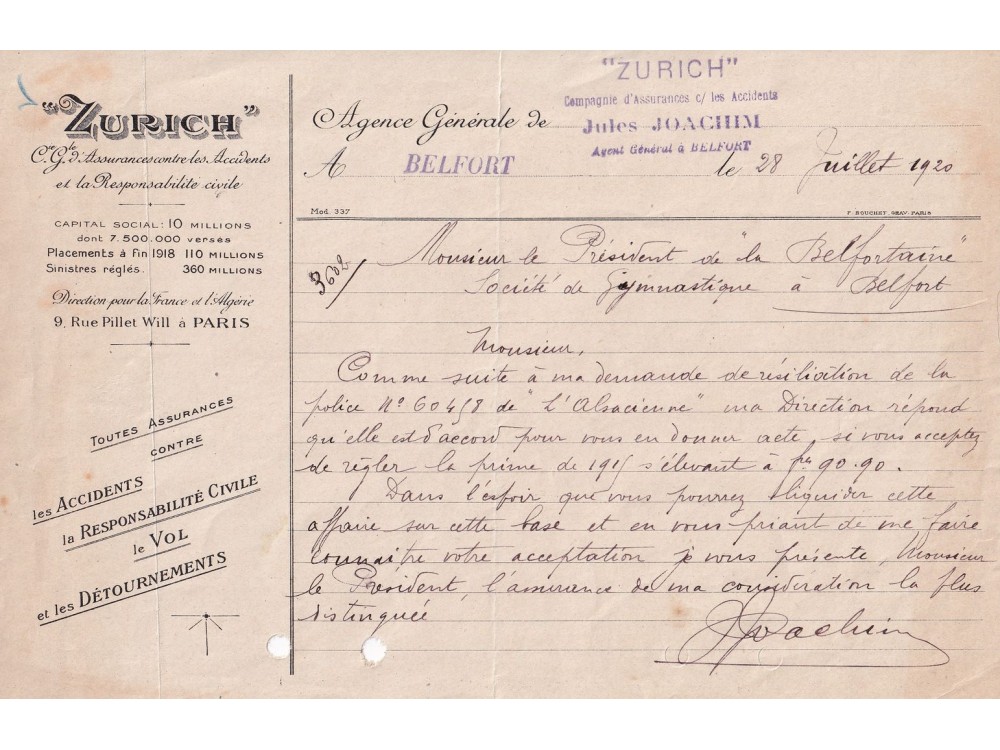 "ZURICH"
Cie Gle d'Assurances contre les Accidents
et la Responsabilité civile
CAPITAL SOCIAL: 10 MILLIONS
dont 7.500.000 versés
Placements à fin 1918 110 MILLIONS
Sinistres réglés. 360 MILLIONS
Direction pour la France et l'Algérie
9, Rue Pillet Will à PARIS
TOUTES ASSURANCES
CONTRE
les ACCIDENTS
la RESPONSABILITÉ CIVILE
le VOL
et les DÉTOURNEMENTS
Agence Générale de
"ZURICH"
Compagnie d'Assurances c/ les Accidents
Jules JOACHIM
Agent Général à BELFORT
A BELFORT le 28 Juillet 1920
Mod. 337
F. BOUCHET, GRAV. PARIS
Monsieur le Président de "la Belfortaine"
Société de Gymnastique à Belfort
Monsieur,
Comme suite à ma demande de résiliation de la
police No de "L'Alsacienne" ma Direction répond
qu'elle est d'accord pour vous en donner acte, si vous acceptez
de régler la prime de s'élevant à frs 90.90.
Dans l'espoir que vous pourrez liquider cette
affaire sur cette base et en vous priant de me faire
connaitre votre acceptation je vous présente, Monsieur
le President, l'assurance de ma considération la plus
distinguée
Joachim